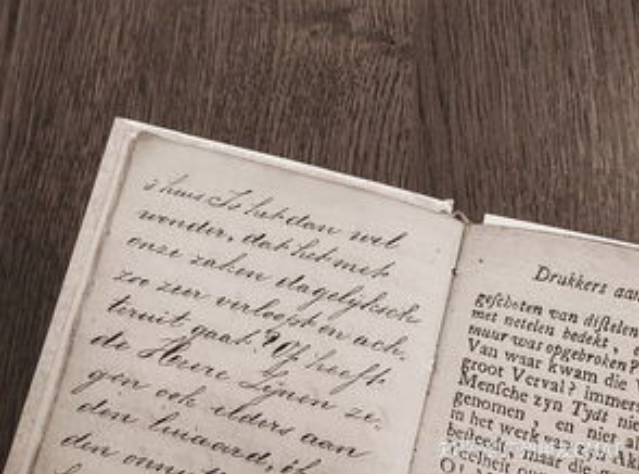 's huis Is het dan wel
wonder, dat het met
onze zaken dagelyksch
zoo zeer verloopt en ach-
teruit gaat? Of heeft
de Heere Zynen ze-
gen ook elders aan
den luiaard, of
den
Drukkers aan
geschoten van distelen
met netelen bedekt,
muur was opgebroken?
Van waar kwam die
groot Verval? immers
Mensche zyn Tydt nie
genomen, en niet a
in het werk van zyn Ak
besteedt, maar die m